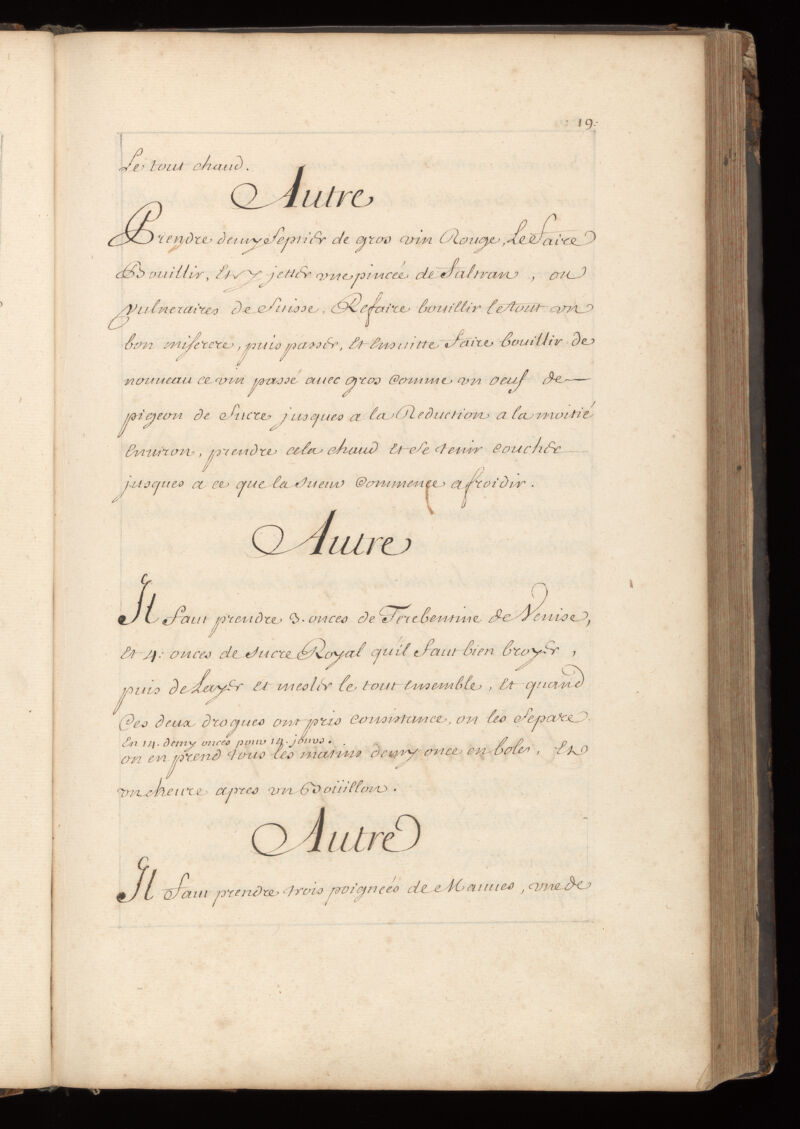 19.
Le tout chaud.
Autre
Prendre demy septier de gros vin Rouge, Le faire
Bouillir, Et y jetter vne pinceé de faltran, ou
vulneraires de Suisse. Refaire bouillir le tout vn
bon miserere, puis passer, Et Ensuitte faire bouillir de
nouueau ce vin passé auec gros Comme vn oeuf de
pigeon de Sucre jusques a la Reduction a la moitié
Enuiron, prendre cela chaud Et se tenir couchér
jusques a ce que la sueur Commence a froidir.
Autre
Il faut prendre 3. onces de Terebentine de Venise,
Et 4: onces de sucre Royal qu'il faut bien broyér,
puis delayér Et meslér le tout Ensemble, Et quand
Ces deux drogues ont pris Consistance, on les separe
En 14. demy onces pour 14. jours.
on en prend tous les matins demy once en boles, Et
vn heure apres vn Boüillon.
Autre
Il faut prendre trois poigneés de Mauues, vne de